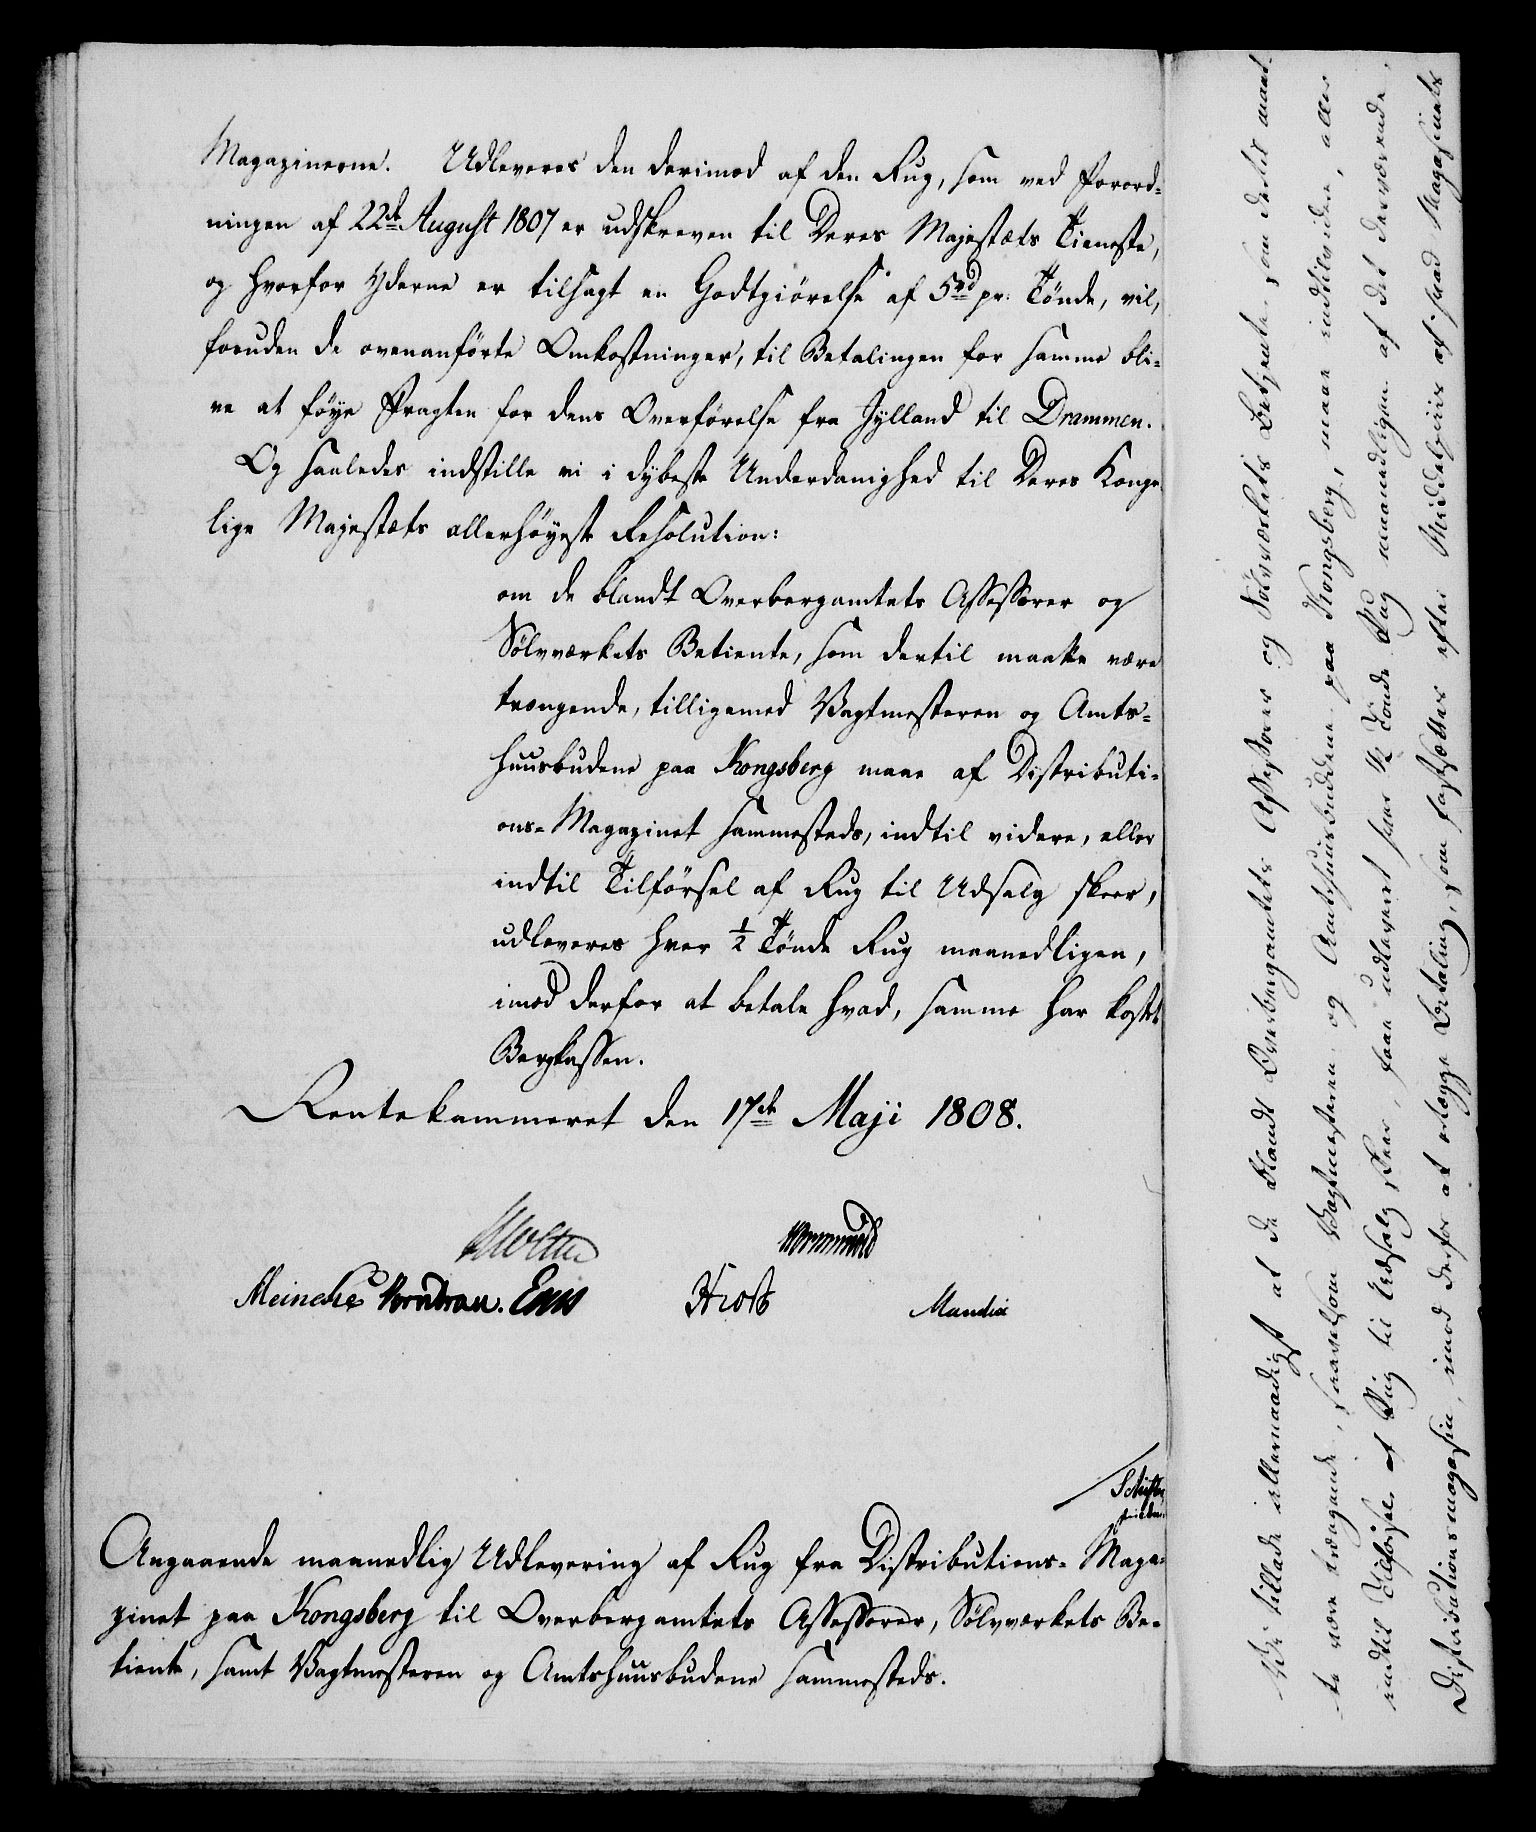 Magazinerne. Udleveres den derimod af den Rug, som ved Forord-
ningen af 22de August 1807 er udskreven til Deres Majestæts Tieneste,
og hvorfor Yderne er tilsagt en Godtgiörelse af 5 rd pr: Tönde, vil,
foruden de ovenanförte Omkostninger, til Betalingen for samme bli-
ve at föye Fragten for dens Overförelse fra Jylland til Drammen.
Og saaledes indstille vi i dybeste Underdanighed til Deres Konge-
lige Majestæts allerhöyeste Resolution:
om de blandt Overbergamtets Assessorer og
Sölvværkets Betiente, som dertil maatte være
trængende, tilligemed Vagtmesteren og Amts-
huusbudene paa Kongsberg maae af Distributi-
ons-Magazinet sammesteds, indtil videre, eller
indtil Tilförsel af Rug til Udsalg skeer,
udleveres hver ½ Tönde Rug maanedligen,
imod derfor at betale hvad, samme har kostet
Bergkassen.
Rentekammeret den 17de Maji 1808.
Moltke
Wormskiold
Meincke Vorndran.
Hrost
Mandix
Angaaende maanedlig Udlevering af Rug fra Distributions-Maga-
zinet paa Kongsberg til Overbergamtets Assessorer, Sölvværkets Be-
tiente, samt Vagtmesteren og Amtshuusbudene sammesteds.
Vi tillade allernaadigst at de blandt Overbergamtets Assessorer og Sölvværkets Betjente, som dertil maat-
te være trængende, saavelsom Vagtmesteren og Amtshuusbuddene paa Kongsberg, maae indtil videre, eller
indtil Tilförsel af Rug til Udsalg skeer, faae udleveret hver ½ Tönde Rug maanedligen af det derværende
Distributionsmagasin, imod derfor at erlægge Betaling, som fastsættes efter Middelpriis af hvad Magasinets